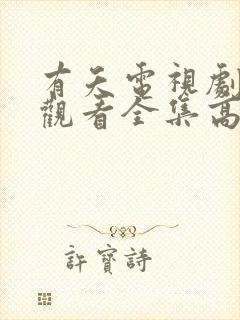 有天電視劇
觀看全集高
許寶詩